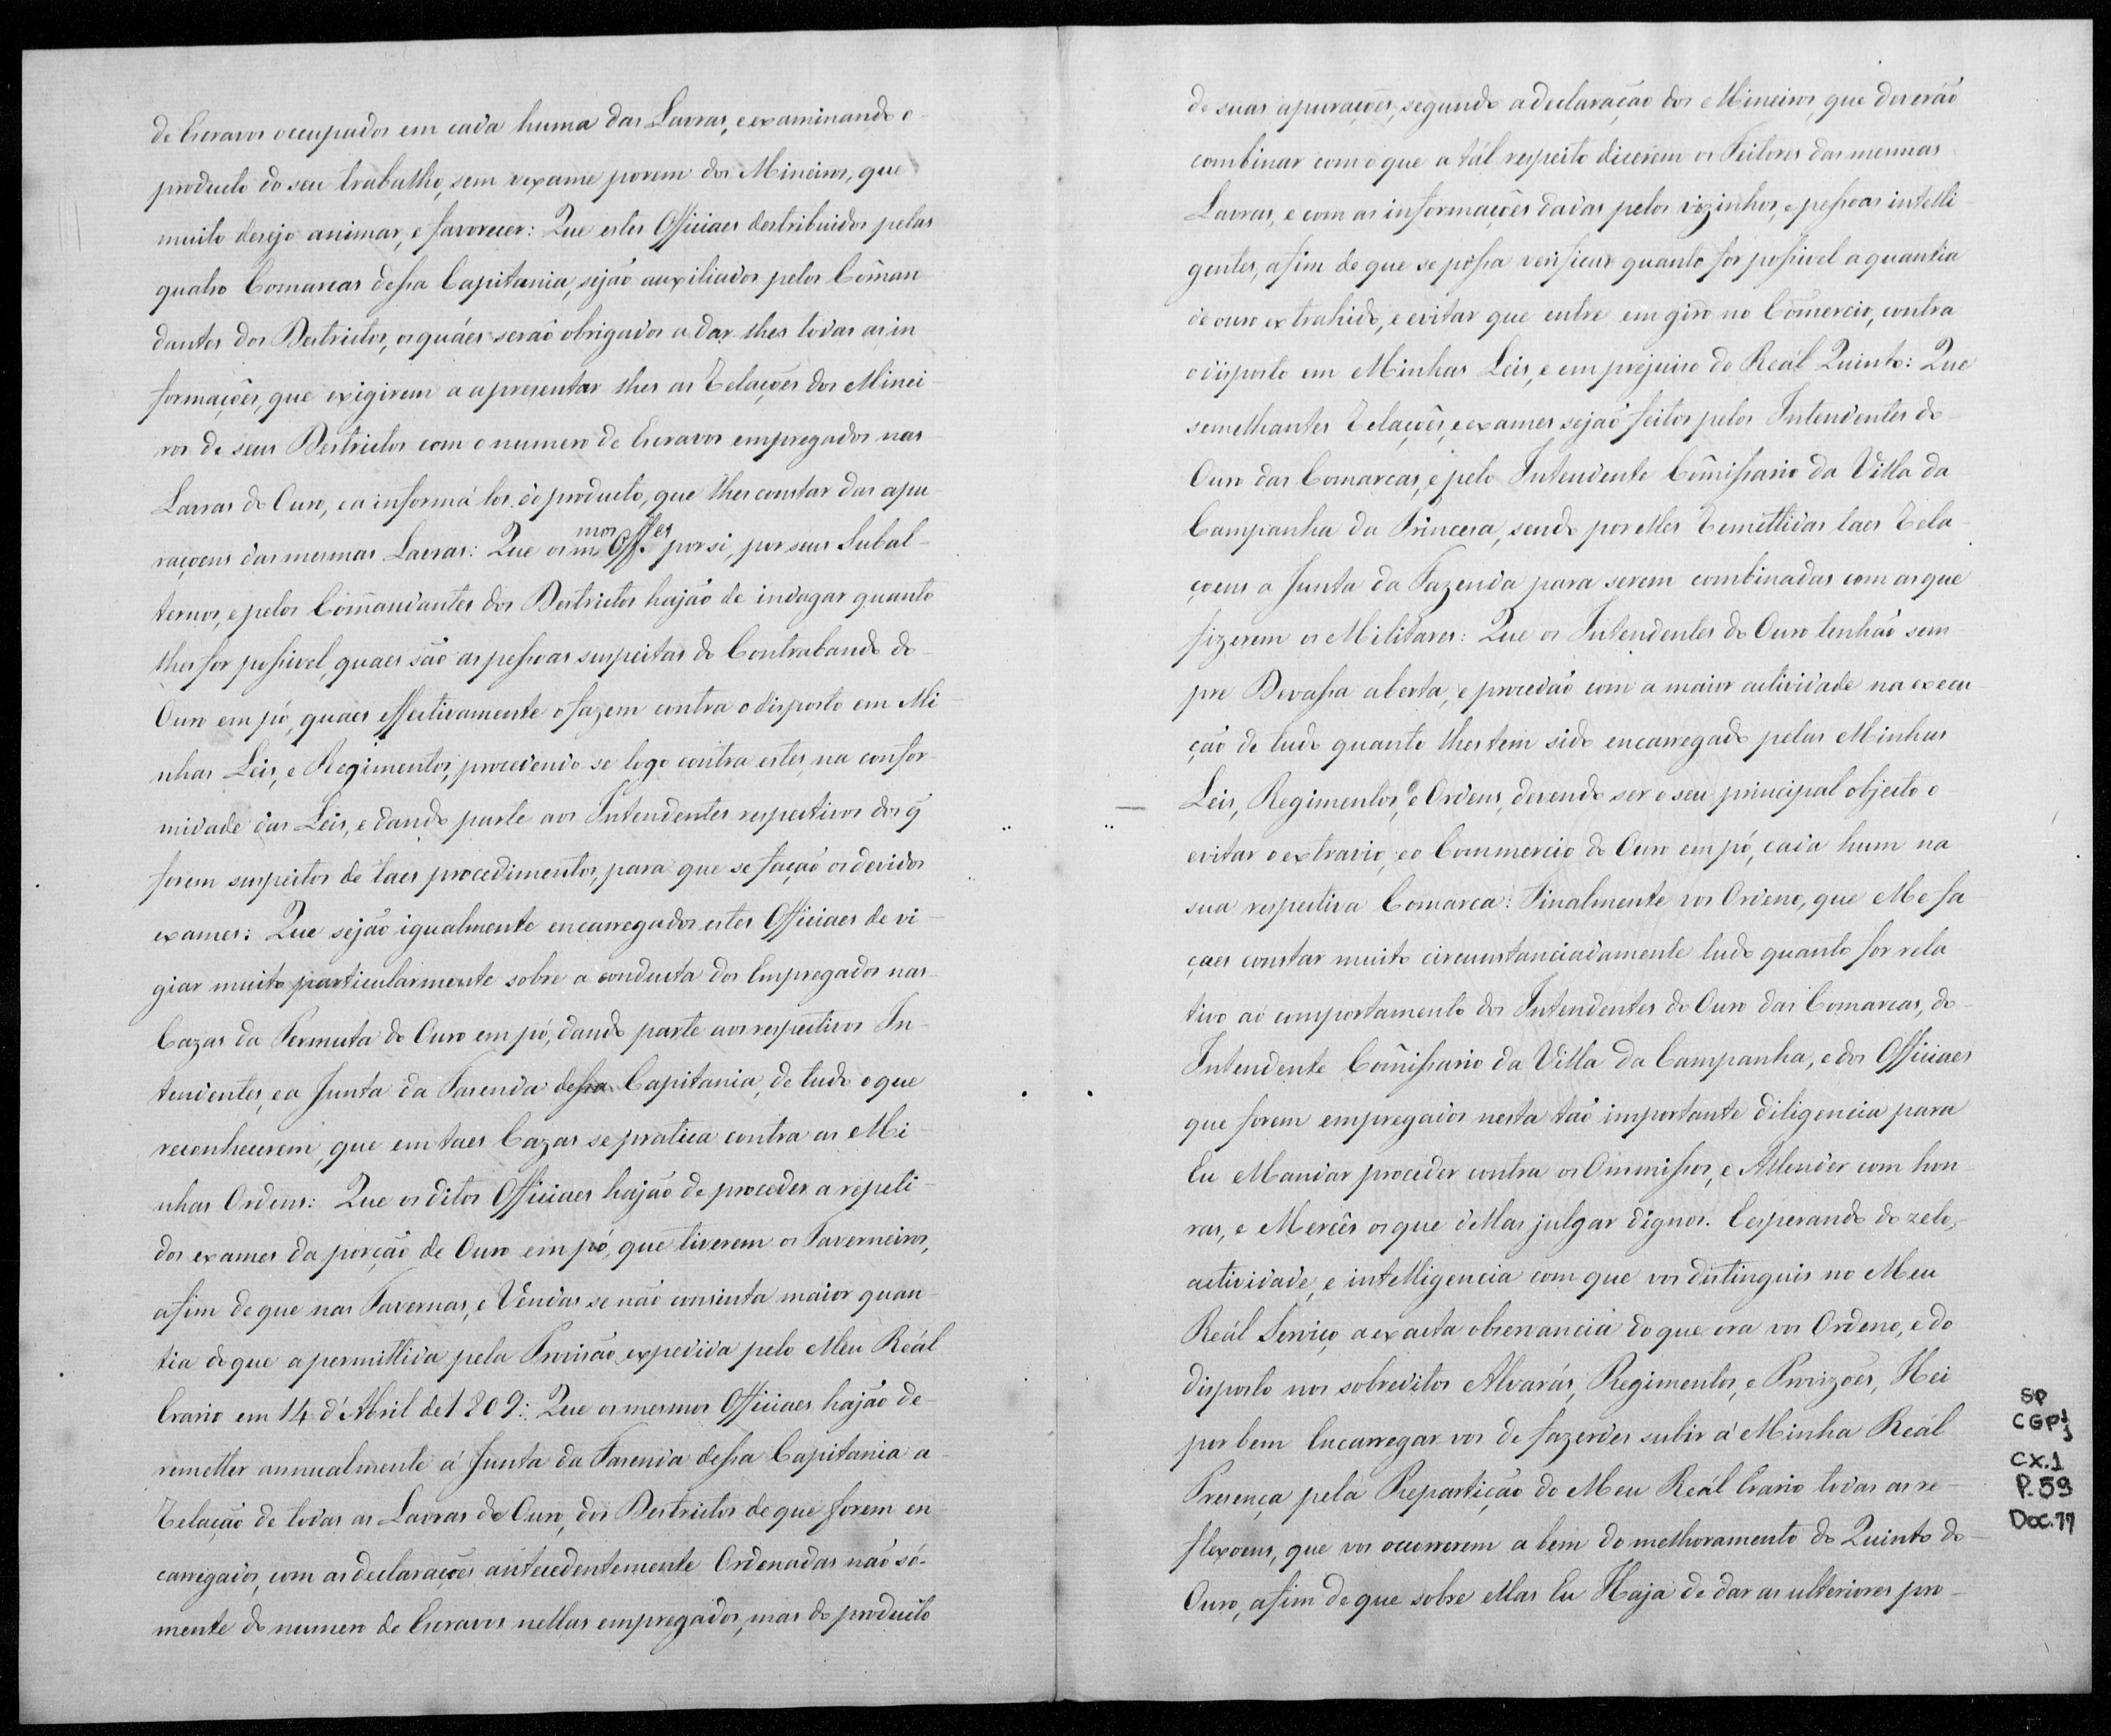 de Escravos occupados em cada huma das Lavras, e examinando o
producto do seu trabalho, sem vexame porem dos Mineiros, que
muito desejo animar, e favorecer: Que estes Officiaes destribuidos pelas
quatro Comarcas dessa Capitania, sejão auxiliados pelos Cõman
dantes dos Destrictos, os quáes serão obrigados a dar lhes todas as in
formações, que exigirem a apresentar lhes as Relações dos Minei
ros de seus Destrictos com o numero de Escravos empregados nas
Lavras do Ouro, e a informá los do producto, que lhes constar das apu
raçoens das mesmas Lavras: Que os mmos Offes por si, por seus Subal-
ternos, e pelos Comandantes dos Destrictos hajão de indagar quanto
lhes for possivel, quaes são as pessoas suspeitas do Contrabando do
Ouro em pó, quaes effectivamente o fazem contra o disposto em Mi
nhas Leis, e Regimentos, procedendo-se logo contra estes, na confor-
midade das Leis, e dando parte aos Intendentes respectivos dos q̃
forem suspeitos de taes procedimentos, para que se fação os devidos
exames: Que sejão igualmente encarregados estes Officiaes de vi-
giar muito particularmente sobre a conducta dos Empregados nas
Cazas da Permuta do Ouro em pó, dando parte aos respectivos In-
tendentes, e a Junta da Fasenda dessa Capitania, de tudo o que
reconhecerem, que em taes Cazas se pratica contra as Mi-
nhas Ordens: Que os ditos Officiaes hajão de proceder a repeti-
dos exames da porção de Ouro em pó, que tiverem os Taverneiros,
afim de que nas Tavernas, e Vendas se não consinta maior quan-
tia do que a permittida pela Provisão expedida pelo Meu Reál
Erario em 14 d'Abril de 1809: Que os mesmos Officiaes hajão de
remetter annualmente á Junta da Fasenda dessa Capitania a
Relação de todas as Lavras do Ouro, dos Destrictos de que forem en
carregados, com as declarações antecedentemente Ordenadas não só-
mente do numero de Escravos nellas empregados, mas do producto
de suas apurações, segundo a declaração dos Mineiros, que deverão
combinar com o que a tál respeito dicerem os Feitores das mesmas
Lavras, e com as informações dadas pelos vizinhos, e pessoas intelli
gentes, afim de que se possa verificar quanto for possivel a quantia
de ouro extrahido, e evitar que entre em giro no Cõmercio, contra
o disposto em Minhas Leis, e em prejuiso do Reál Quinto: Que
semelhantes Relações, e exames sejão feitos pelos Intendentes do
Ouro das Comarcas, e pelo Intendente Cõmissario da Villa da
Campanha da Princesa, sendo por elles Remettidas taes Rela
çoens a Junta da Fazenda para serem combinadas com as que
fizerem os Militares: Que os Intendentes do Ouro tenhão sem
pre Devassa aberta, e procedão com a maior actividade na execu
ção de tudo quanto lhes tem sido encarregado pelas Minhas
Leis, Regimentos, e Ordens, devendo ser o seu principal objecto o
evitar o extravio, e o Commercio do Ouro em pó, cada hum na
sua respectiva Comarca: Finalmente vos Ordeno, que Me fa
çaes constar muito circumstanciadamente tudo quanto for rela
tivo ao comportamento dos Intendentes do Ouro das Comarcas, do
Intendente Cõmissario da Villa da Campanha, e dos Officiaes
que forem empregados nesta tão importante diligencia para
Eu Mandar proceder contra os Ommissos, e Attender com hon
ras, e Mercês os que d'ellas julgar dignos. Esperando do zelo,
actividade, e intelligencia com que vos distinguis no Meu
Reál Serviço a exacta observancia do que ora vos Ordeno, e do
disposto nos sobreditos Alvarás, Regimentos, e Provizões, Hei
por bem Encarregar vos de fazerdes subir á Minha Reál
Presença pela Repartição do Meu Reál Erario todas as re-
flexoens, que vos occorrerem a bem do melhoramento do Quinto do
Ouro, afim de que sobre ellas Eu Haja de dar as ulteriores pro-
SP
CGP1
CX.1
P.59
Doc.77